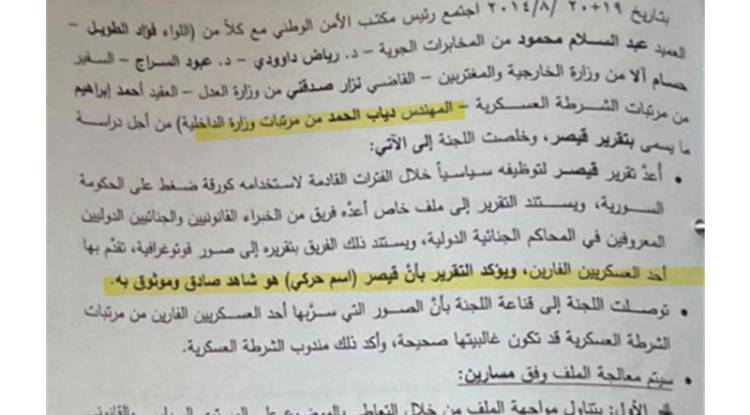 بتاريخ ١٩+٢٠ /٢٠١٤/٨ اجتمع رئيس مكتب الأمن الوطني مع كلاً من (اللواء فؤاد الطويل –
العميد عبد السلام محمود من المخابرات الجوية – د. رياض داوودي – د. عبود السراج – السفير
حسام آلا من وزارة الخارجية والمغتربين – القاضي نزار صدقني من وزارة العدل – العقيد أحمد إبراهيم
من مرتبات الشرطة العسكرية – المهندس دياب الحمد من مرتبات وزارة الداخلية) من أجل دراسة
ما يسمى بتقرير قيصر، وخلصت اللجنة إلى الآتي:
• أعدّ تقرير قيصر لتوظيفه سياسياً خلال الفترات القادمة لاستخدامه كورقة ضغط على الحكومة
السورية، ويستند التقرير إلى ملف خاص أعدّه فريق من الخبراء القانونيين والجنائيين الدوليين
المعروفين في المحاكم الجنائية الدولية، ويستند ذلك الفريق بتقريره إلى صور فوتوغرافية، تقدّم بها
أحد العسكريين الفارين، ويؤكد التقرير بأنّ قيصر (اسم حركي) هو شاهد صادق وموثوق به.
• توصلت اللجنة إلى قناعة اللجنة بأنّ الصور التي سرّبها أحد العسكريين الفارين من مرتبات
الشرطة العسكرية قد تكون غالبيتها صحيحة، وأكد ذلك مندوب الشرطة العسكرية.
• سيتم معالجة الملف وفق مسارين:
الأول: يتناول مواجهة الملف من خلال التعاطي بالموضوع على